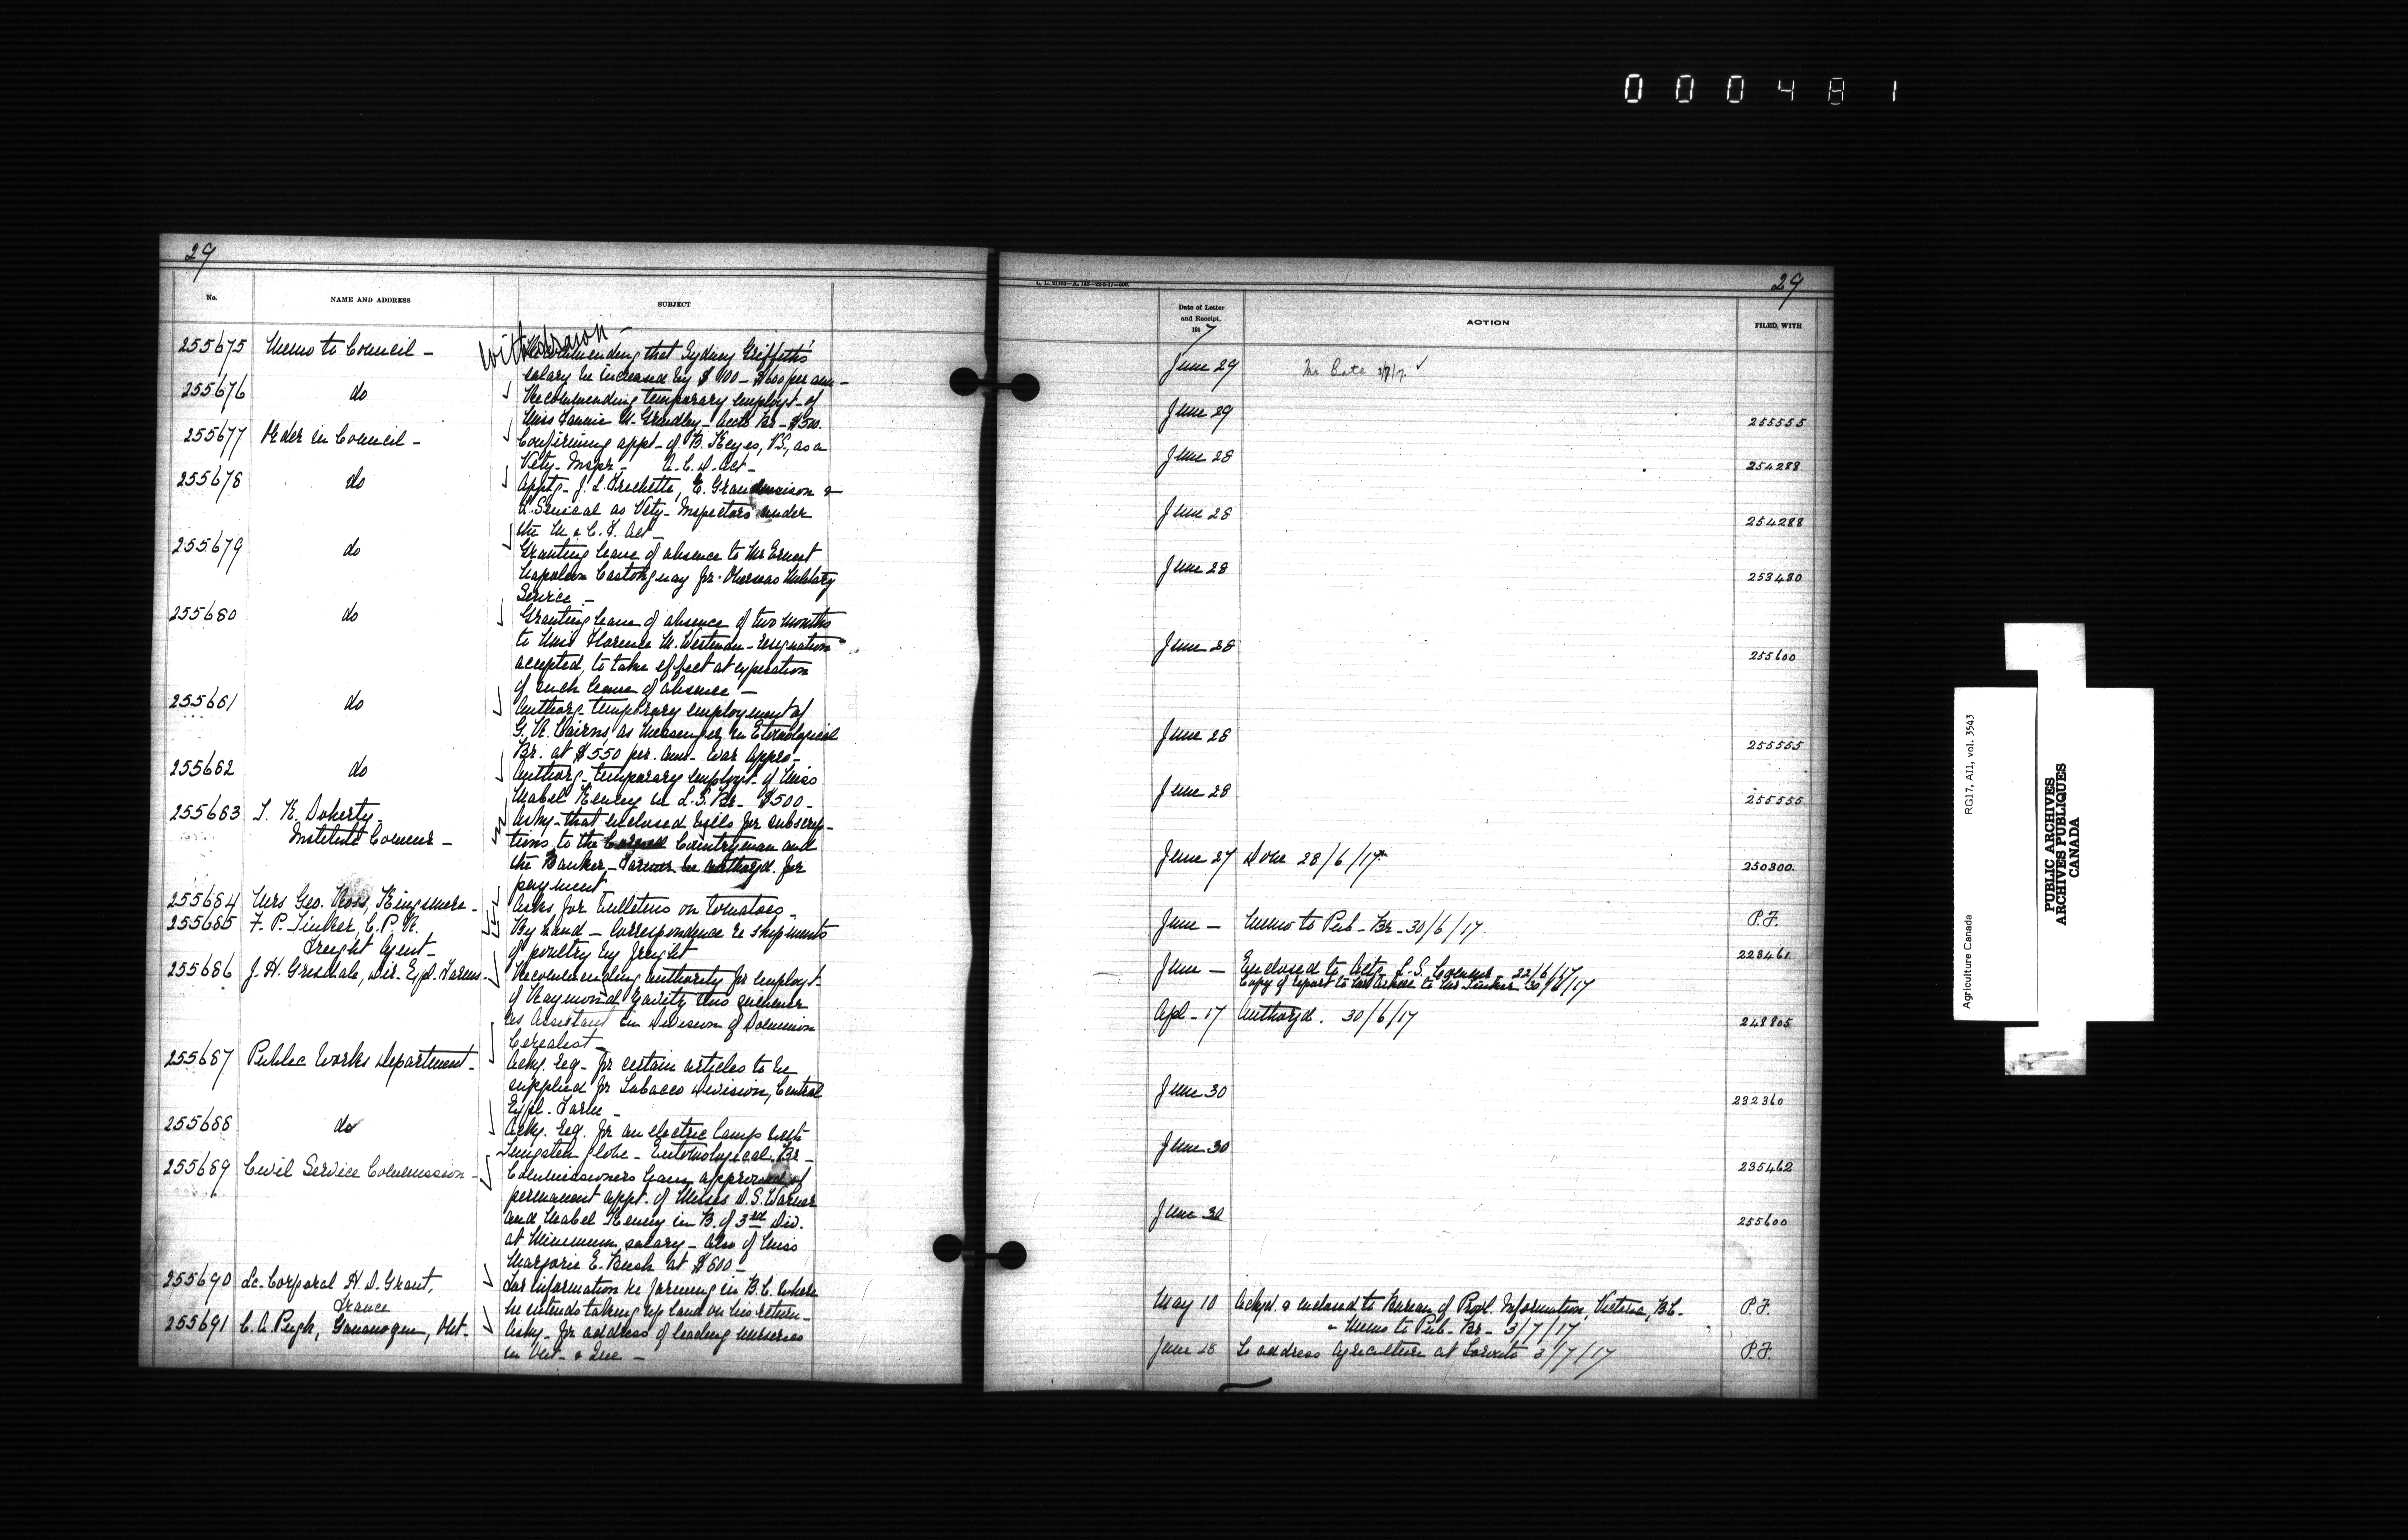 000481
29
No.
NAME AND ADDRESS
SUBJECT
withdrawn -
255675 Memo to Council - Recommending that Sydney Griffiths'
salary be increased by $100 - $600 per ann -
255676 do Recommending temporary employt - of
Miss Fannie M. Grindley - Accts Br - $500.
255677 Order in Council - Confirming appt - of B. Keyes, V.S., as a
Vety - Inspr - A. C. D. Act -
255678 do Apptg - J. L. Frechette, E. Grandmaison &
L. Senical as Vety - Inspectors under
the M. & C. F. Act -
255679 do Granting leave of absence to Mr Ernest
Napoleon Castonguay for Overseas Military
Service -
255680 do Granting leave of absence of two months
to Miss Florence M. Westman - resignation
accepted, to take effect at expiration
of such leave of absence -
255681 do Authorg - temporary employment of
G. R. Cairns, as Messenger in Etomological
Br. at $550 per. ann - War Appro -
255682 do Authorg - temporary employt - of Miss
Mabel Kenny in L. S. Br - $500 -
255683 T. K. Doherty - Askg - that enclosed bills for subscrip -
Institute Commr - tions to the Country man and
the Banker - Farmer be authorzd. for
payment
255684 Mrs Geo. Ross, Kingsmere - Asks for bulletins on tomatoes -
255685 F. P. Tinker, C. P. R. By hand - correspondence re shipments
Freight Agent - of poultry by freight
255686 J. H. Grisdale, Dir. Expl. Farms - Recommending authority for employt -
of Raymond this summer
as Assistant in Division of Dominion
Cerealist -
255687 Public Works Department - Ackg. req - for certain articles to be
supplied for Tobacco Division, Central
Expl. Farm -
255688 do Ackg. req. for an electric lamp with
Tungsten globe - Entomological Br -
255689 Civil Service Commission - Commissioners have approved of
permanent appt - of Misses D. S. Warner
and Mabel Kenny in B. of 3rd Div.
at minimum salary - Also of Miss
Marjorie E. Bush at $600 -
255690 Lc. Corporal H. D. Grant, For information re farming in B. C. where
France he intends taking up land on his return -
255691 C. A. Pugh, Gananoque, Ont - Askg - for address of leading nurseries
in Ont - & Que -
29
Date of Letter
and Receipt,
1917
ACTION
FILED WITH
June 29
June 29 255555
June 28 254288
June 28 254288
June 28 253480
June 28 255600
June 28 255555
June 28 255555
June 27 Done 28/6/17 250300
June - Memo to Pub - Br - 30/6/17 P.F.
June - Enclosed to Actg L. S. Commr - 22/6/17 223461
Copy of report to to Mr Tinker 30/6/17
Apl - 17 Authorzd. 30/6/17 248805
June 30 232360
June 30 235462
June 30 255600
May 10 Ackgd. & enclosed to Bureau of Provl. Information, Victoria, B.C. P.F.
- Memo to Pub - Br - 3/7/17
June 28 To address Agriculture at Toronto 3/7/17 P.F.
Agriculture Canada RG17, AII, vol. 3543
PUBLIC ARCHIVES
ARCHIVES PUBLIQUES
CANADA